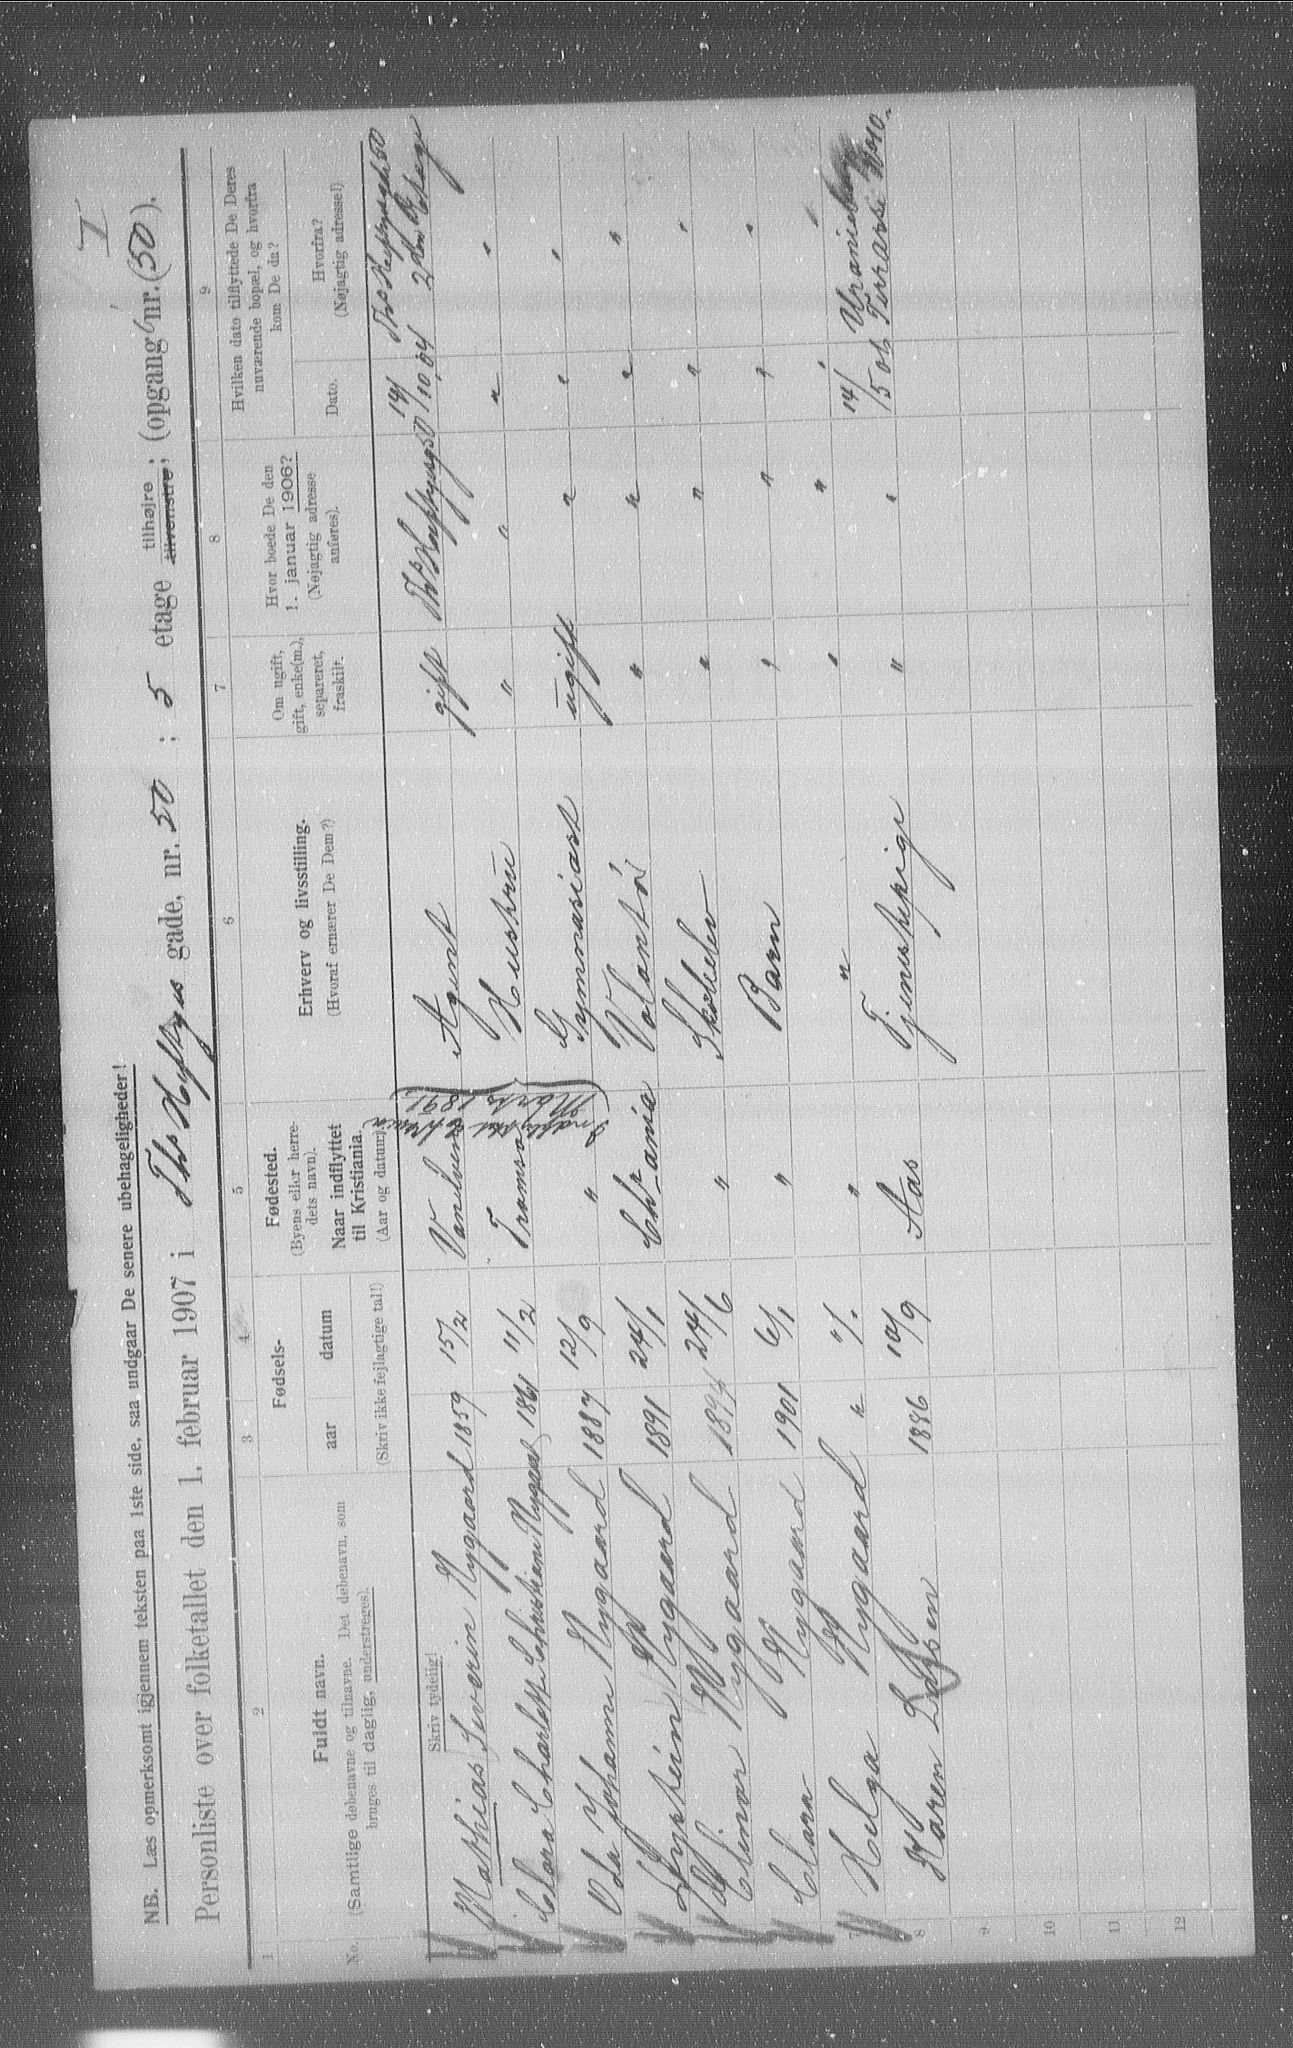 I
NB. Læs opmerksomt igjennem teksten paa 1ste side, saa undgaar De senere ubehageligheder!
Personliste over folketallet den 1. februar 1907 i Ths Heftyes gade, nr. 50; 5 etage tilhøjre tilvenstre; (opgang nr. (50).
1 2 3 4 5 6 7 8 9
No. Fuldt navn. (Samtlige døbenavne og tilnavne. Det døbenavn, som bruges til daglig, understreges).
Fødsels- aar datum (Skriv ikke fejlagtige tal!)
Fødested. (Byens eller herredets navn). Naar indflyttet til Kristiania. (Aar og datum).
Erhverv og livsstilling. (Hvoraf ernærer De Dem?)
Om ugift, gift, enke(m.), separeret, fraskilt.
Hvor boede De den 1. januar 1906? (Nøjagtig adresse anføres).
Hvilken dato tilflyttede De Deres nuværende bopæl, og hvorfra kom De da?
Dato. Hvorfra? (Nøjagtig adresse!)
Skriv tydelig!
Mathias Severin Nygaard 1859 15/2 Agent gift Ths Heftyesg 50 14/10 04 Ths Heftyesgd 50 2den Etage
Clara Charlotte Christiane Nygaard 1861 11/2 Tromsø Hustru " " " "
Indflyttet Marts 1891
Oda Johanne Nygaard 1887 12/9 " Gymnasiast ugift " " "
Nygaard 1891 24/1 Chr.ania Volontør " " " "
Elinor Nygaard 24/6 " Skoleelev " " " "
Clara Nygaard 1901 6/1 " Barn " " " "
7 Helga Nygaard " "/" " " " " " "
8 Karen 1886 10/9 Aas Tjenestepige " " 14/ 15 06 Uranienborg Terrasse No 10.
9
10
11
12